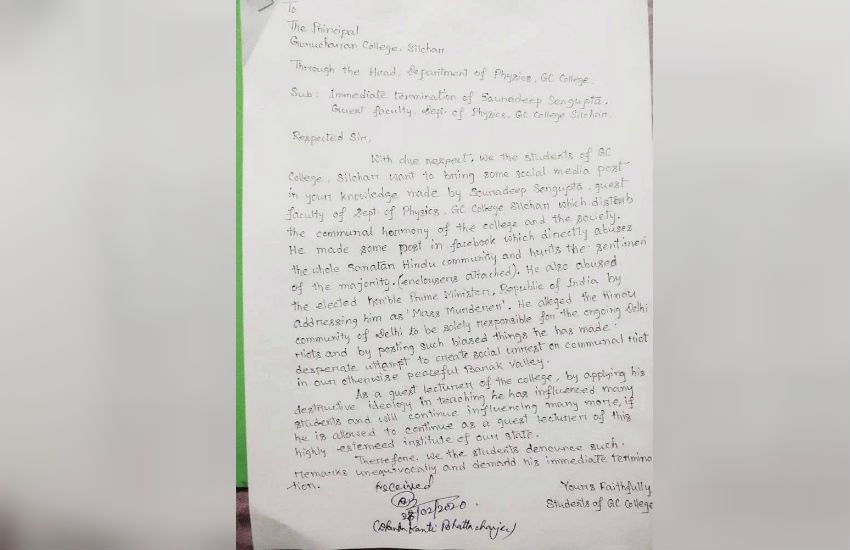 To
The Principal
Gurucharan College, Silchar
Through the Head, Department of Physics, GC College.
Sub: Immediate termination of Sauradeep Sengupta,
Guest faculty Dept. of Physics, GC College Silchar.
Respected Sir,
With due respect, We the students of GC
College, Silchar want to bring some social media post
in your knowledge made by Souradeep Sengupta, guest
faculty of Dept of Physics, GC College Silchar which distrub
the communal hormony of the college and the society.
He made some post in facebook which directly abuses
the whole Sanatan Hindu community and hurts the sentimen
of the majority. (enclousers attached). He also abused
the elected Hon'ble Prime Minister, Republic of India by
addressing him as 'Mass Murderer'. He alleged the Hindu
community of Delhi to be solely responsible for the ongoing Delhi
riots and by posting such biased things he has made
desperate attempt to create social unrest or communal riot
in our otherwise peaceful Barak valley.
As a guest lecturer of the college, by applying his
destructive ideology in teaching he has influenced many
students and will continue influencing many more, if
he is allowed to continue as a guest lecturer of this
highly esteemed institute of our state.
Therefore, we the students denounce such
remarks unequivocally and demand his immediate termina
tion.
Received
28/02/2020.
Yours Faithfully
Students of GC College
Kanti Bhattacharjee)